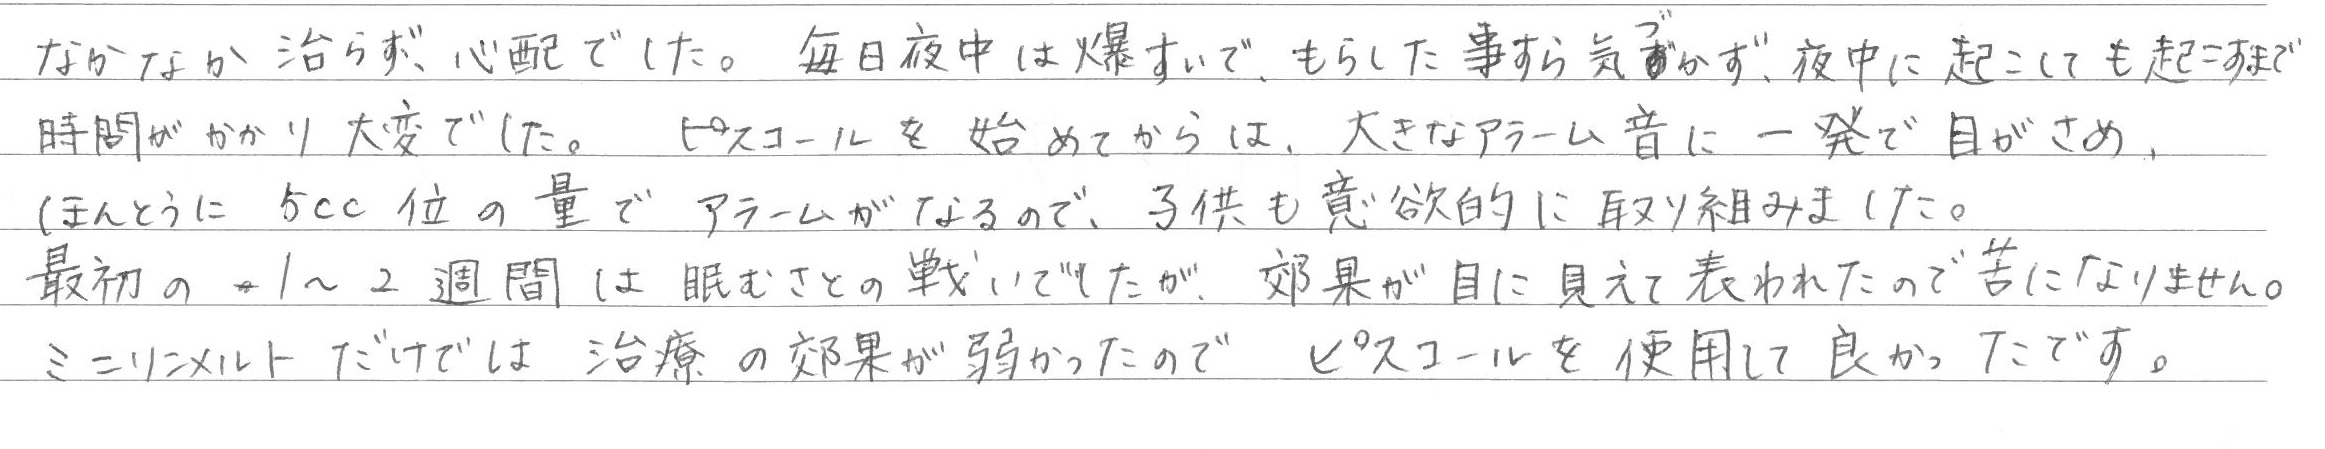 なかなか治らず、心配でした。毎日夜中は爆すいで、もらした事すら気づかず、夜中に起こしても起こすまで
時間がかかり大変でした。ピスコールを始めてからは、大きなアラーム音に一発で目がさめ、
ほんとうに5cc位の量でアラームがなるので、子供も意欲的に取り組みました。
最初の1～2週間は眠むさとの戦いでしたが、効果が目に見えて表われたので苦になりません。
ミニリンメルトだけでは治療の効果が弱かったのでピスコールを使用して良かったです。